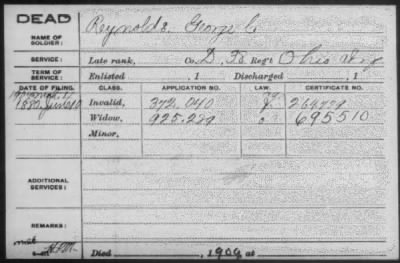 DEAD
NAME OF SOLDIER:
Reynolds, George C.
SERVICE:
Late rank, Co. D, 78 Reg't Ohio Inf
TERM OF SERVICE:
Enlisted , 1 Discharged , 1
DATE OF FILING. CLASS. APPLICATION NO. LAW. CERTIFICATE NO.
1880 June 10 Invalid, 372.040
Widow, 925.229 695510
Minor.
ADDITIONAL SERVICES:
REMARKS:
Died , 1909 at